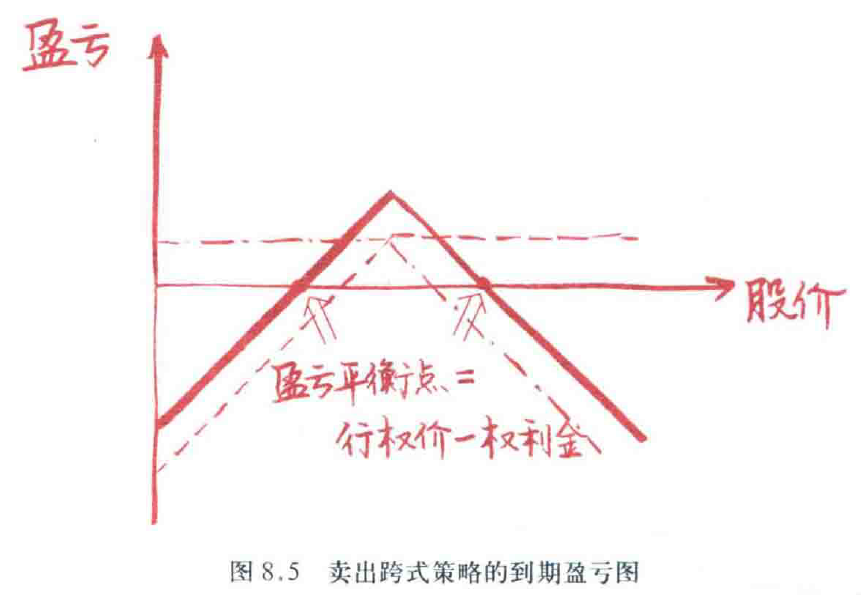 盈亏
股价
盈亏平衡点=
行权价-权利金
图8.5 卖出跨式策略的到期盈亏图